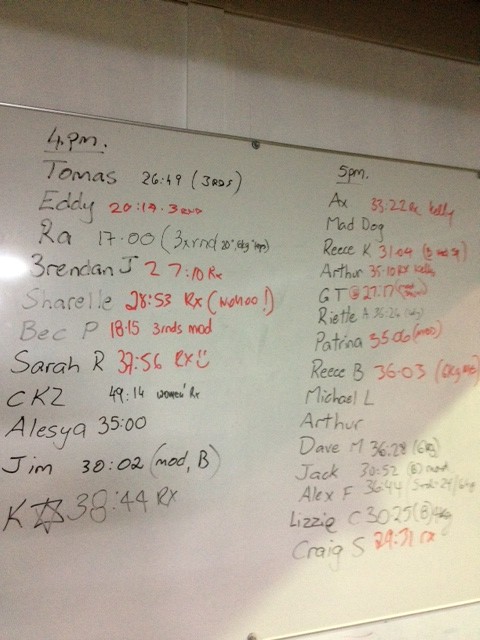 4.pm.
Tomas 26:49 (3RDS)
Eddy 20:19. 3RND
Ra 17.00 (3xrnd 20", 6kg
Brendan J 27:10 Rx
Sharelle 28:53 Rx (wohoo!)
Bec P 18:15 3rnds mod
Sarah R 37:56 RX
CKZ 49:14 women's Rx
Alesya 35:00
Jim 30:02 (mod, B)
K 38:44 RX
5pm.
Ax 33:22 Rx kelly
Mad Dog
Reece K 31:04
Arthur 35:10 RX kelly
GT @ 27:17
Rielle A 36:26 (6kg)
Patrina 35.06 (mod)
Reece B 36:03 (6kg
Michael L
Arthur
Dave M 36:28 (6kg)
Jack 30:52 (B) mod
Alex F 36:44
Lizzie C 30:25 (B) 4kg
Craig S 29:31 rx